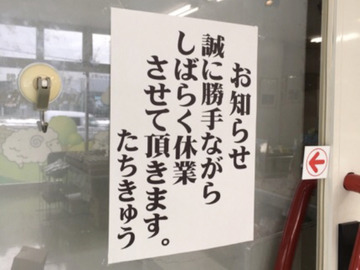 お知らせ
誠に勝手ながら
しばらく休業
させて頂きます。
たちきゅう